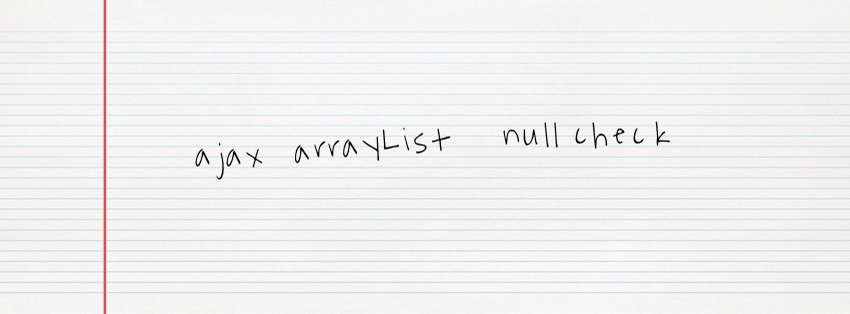 ajax arrayList null check